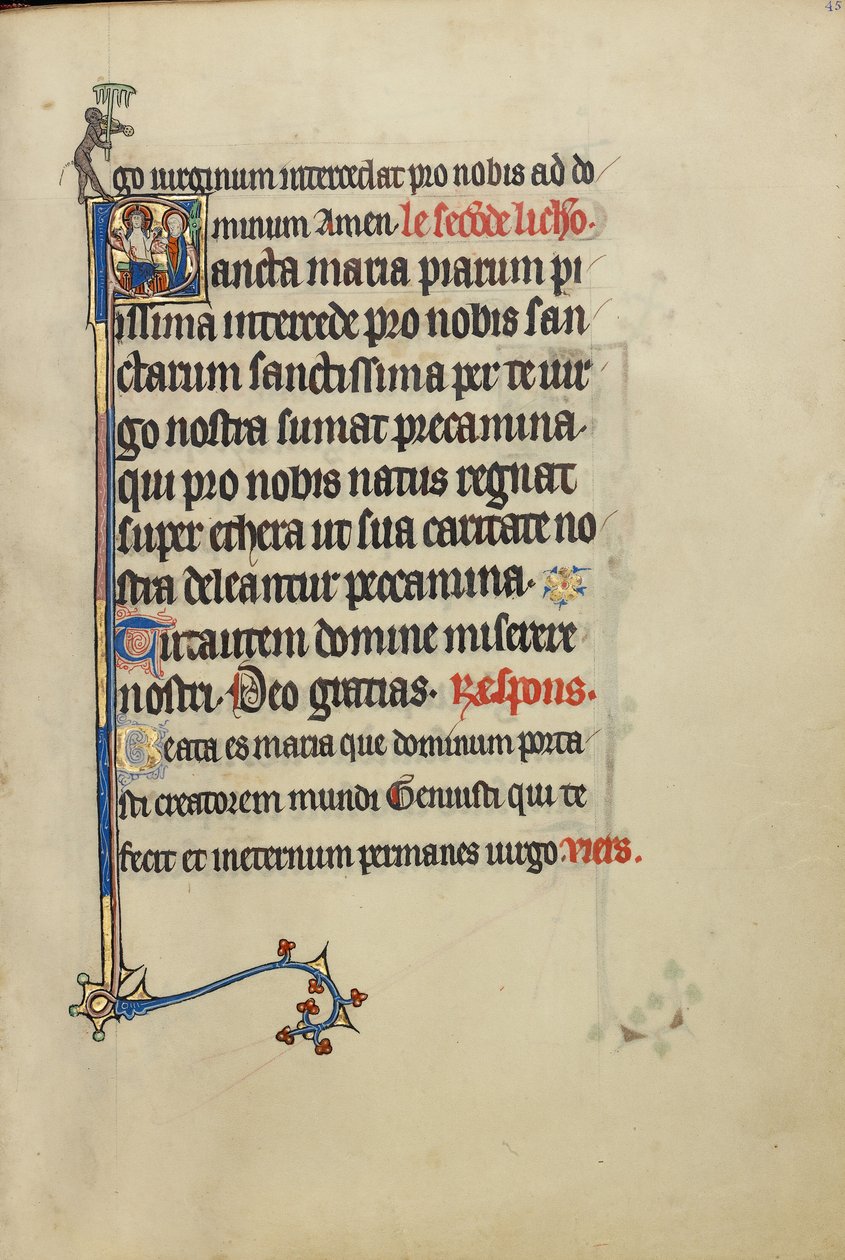 45
go uirginum intercedat pro nobis ad do
minum Amen. le secōde lichō.
Sancta maria piarum pi
issima intercede pro nobis san
ctarum sanctissima per te uir
go nostra sumat precamina.
qui pro nobis natus regnat
super ethera ut sua caritate no
stra deleantur peccamina.
Tu autem domine miserere
nostri. Deo gratias. Respons.
Beata es maria que dominum porta
sti creatorem mundi Genuisti qui te
fecit et ineternum permanes uirgo. viers.